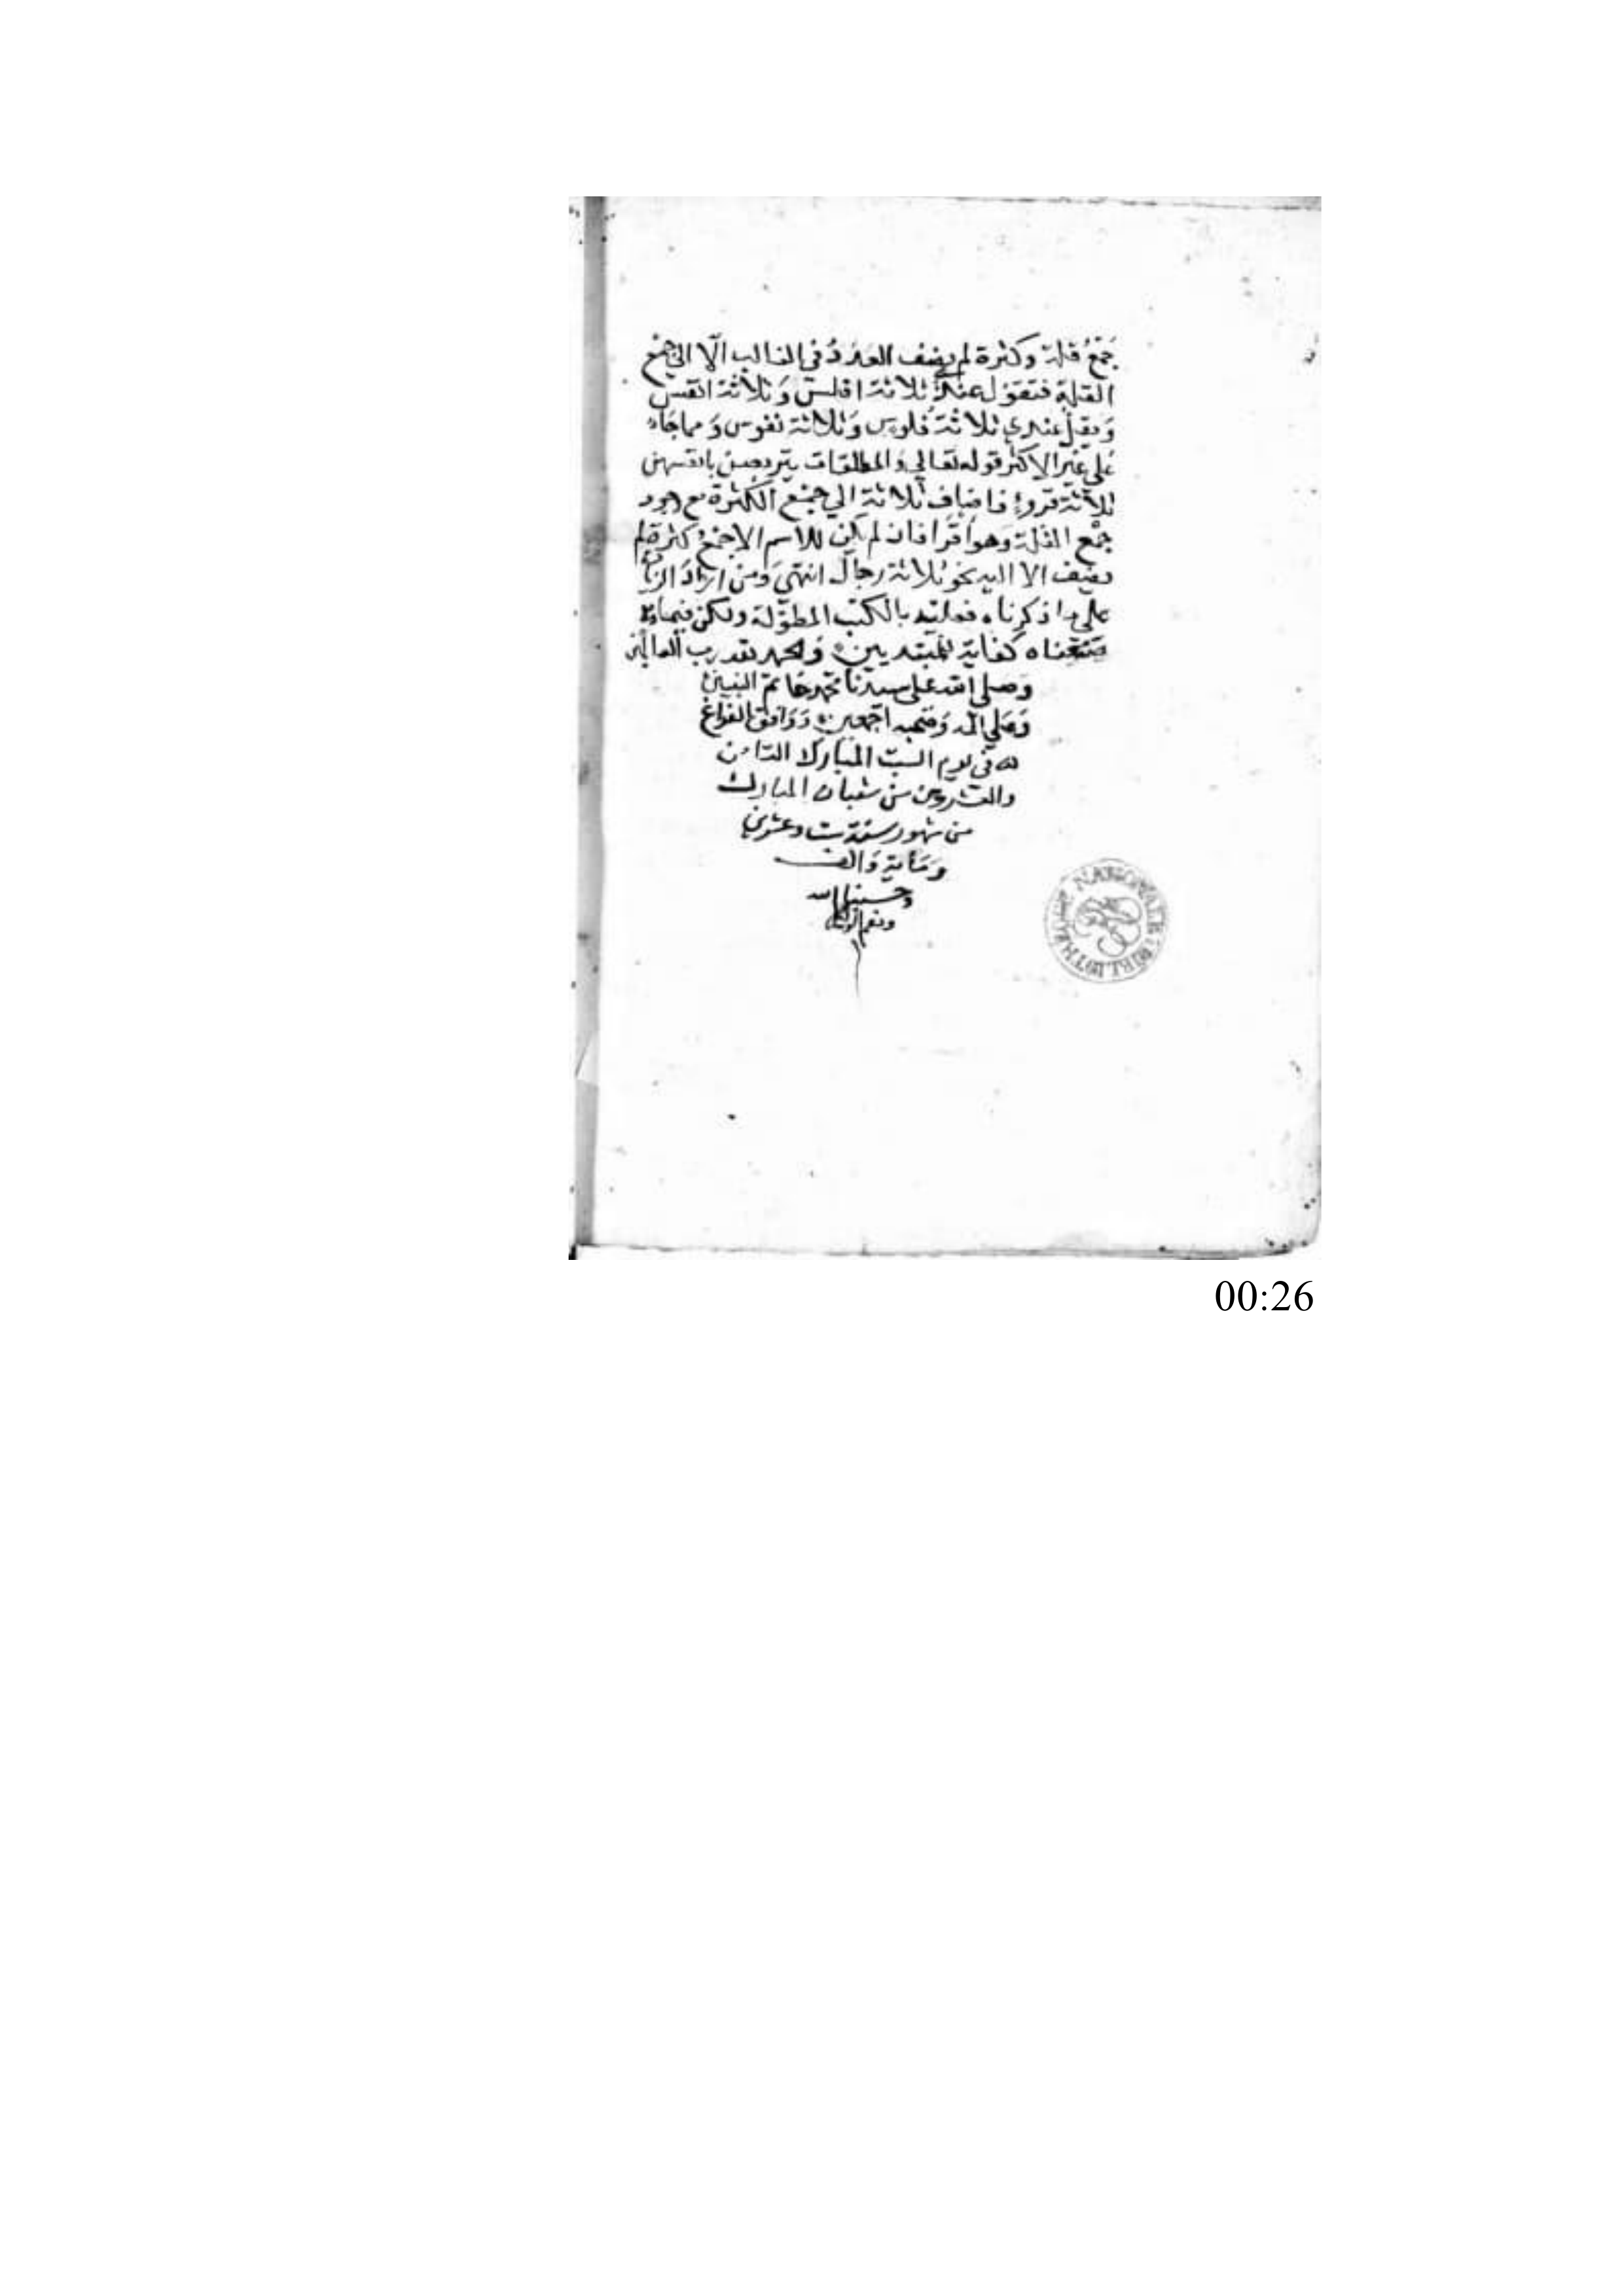 جَمْعُ قلة وكثرة لم يضف العَدَدُ في الغالب الّا الي جمع
القلة فتقول عندي ثلاثة افلس وَثلاثة انفس
وَيقل عندي ثلاثة فُلوس وَثلاثة نفوس وَمما جَاء
عَلي غير الاكثر قوله تعالي وَالمطلقات يتربصن بانفسهن
ثلاثة قروء فاضاف ثلاثة الي جمْع الكثرة مع وجود
جمْع القلة وَهو اقرا فان لم يكن للاسم الا جمْعُ كثرة لم
يضف الا اليه نحو ثلاثة رجال انتهيَ وَمن ارادَ الزيادة
علي ما ذكرناه فعليه بالكتب المطوّلة ولكن فيما
كفاية للمبتديين وَالحمد لله رب العالمين
وَصلي الله على سيدنا محمد خاتم النبيين
وَعَلي اله وَصَحبه اجمعين وَوَافق الفراغ
في يوم السبت المبارك الثامن
والعشرين من شعبان المبارك
من شهور سنة ست وعشرين
وَمَائة وَالف
وحسبنا الله
ونعم الوكيل
BIBLIOTHEQUE NATIONALE
00:26